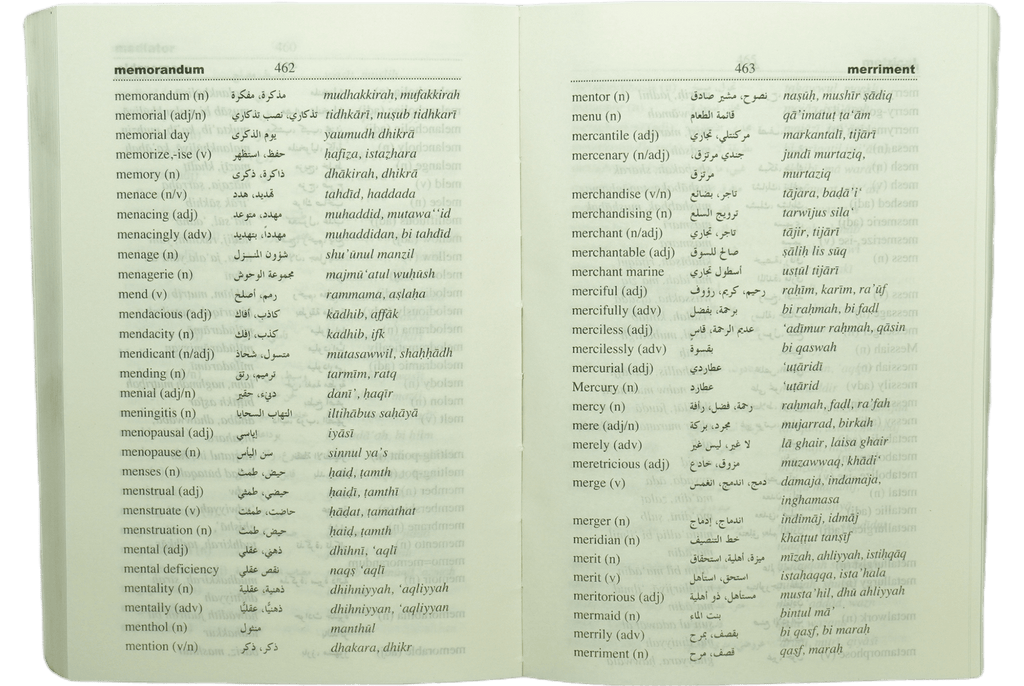 memorandum 462
memorandum (n) مذكرة، مفكرة mudhakkirah, mufakkirah
memorial (adj/n) تذكاري، نصب تذكاري tidhkārī, nuṣub tidhkarī
memorial day يوم الذكرى yaumudh dhikrā
memorize,-ise (v) حفظ، استظهر ḥafiẓa, istaẓhara
memory (n) ذاكرة، ذكرى dhākirah, dhikrā
menace (n/v) تهديد، هدد tahdīd, haddada
menacing (adj) مهدد، متوعد muhaddid, mutawa‘‘id
menacingly (adv) مهدداً، بتهديد muhaddidan, bi tahdīd
menage (n) شؤون المنـزل shu’ūnul manzil
menagerie (n) مجموعة الوحوش majmū‘atul wuḥūsh
mend (v) رمم، أصلح rammama, aṣlaḥa
mendacious (adj) كاذب، أفاك kādhib, affāk
mendacity (n) كذب، إفك kadhib, ifk
mendicant (n/adj) متسول، شحاذ mutasawwil, shaḥḥādh
mending (n) ترميم، رتق tarmīm, ratq
menial (adj/n) دنيء، حقير danī’, ḥaqīr
meningitis (n) التهاب السحايا iltihābus saḥāyā
menopausal (adj) إياسي iyāsī
menopause (n) سن اليأس sinnul ya’s
menses (n) حيض، طمث ḥaiḍ, ṭamth
menstrual (adj) حيضي، طمثي ḥaiḍī, ṭamthī
menstruate (v) حاضت، طمثت ḥāḍat, ṭamathat
menstruation (n) حيض، طمث ḥaiḍ, ṭamth
mental (adj) ذهني، عقلي dhihnī, ‘aqlī
mental deficiency نقص عقلي naqṣ ‘aqlī
mentality (n) ذهنية، عقلية dhihniyyah, ‘aqliyyah
mentally (adv) ذهنيًّا، عقليًّا dhihniyyan, ‘aqliyyan
menthol (n) منثول manthūl
mention (v/n) ذكر، ذكر dhakara, dhikr
463 merriment
mentor (n) نصوح، مشير صادق naṣūḥ, mushīr ṣādiq
menu (n) قائمة الطعام qā’imatuṭ ṭa‘ām
mercantile (adj) مركنتلي، تجاري markantalī, tijārī
mercenary (n/adj) جندي مرتزق، jundī murtaziq,
مرتزق murtaziq
merchandise (v/n) تاجر، بضائع tājara, baḍā’i‘
merchandising (n) ترويج السلع tarwījus sila‘
merchant (n/adj) تاجر، تجاري tājir, tijārī
merchantable (adj) صالح للسوق ṣāliḥ lis sūq
merchant marine أسطول تجاري usṭūl tijārī
merciful (adj) رحيم، كريم، رؤوف raḥīm, karīm, ra’ūf
mercifully (adv) برحمة، بفضل bi raḥmah, bi faḍl
merciless (adj) عديم الرحمة، قاس ‘adīmur raḥmah, qāsin
mercilessly (adv) بقسوة bi qaswah
mercurial (adj) عطاردي ‘uṭāridī
Mercury (n) عطارد ‘uṭārid
mercy (n) رحمة، فضل، رأفة raḥmah, faḍl, ra’fah
mere (adj/n) مجرد، بركة mujarrad, birkah
merely (adv) لا غير، ليس غير lā ghair, laisa ghair
meretricious (adj) مزوق، خادع muzawwaq, khādi‘
merge (v) دمج، اندمج، انغمس damaja, indamaja,
inghamasa
merger (n) اندماج، إدماج indimāj, idmāj
meridian (n) خط التنصيف khaṭṭut tanṣīf
merit (n) ميزة، أهلية، استحقاق mīzah, ahliyyah, istiḥqāq
merit (v) استحق، استأهل istaḥaqqa, ista’hala
meritorious (adj) مستأهل، ذو أهلية musta’hil, dhū ahliyyah
mermaid (n) بنت الماء bintul mā’
merrily (adv) بقصف، بمرح bi qaṣf, bi maraḥ
merriment (n) قصف، مرح qaṣf, maraḥ